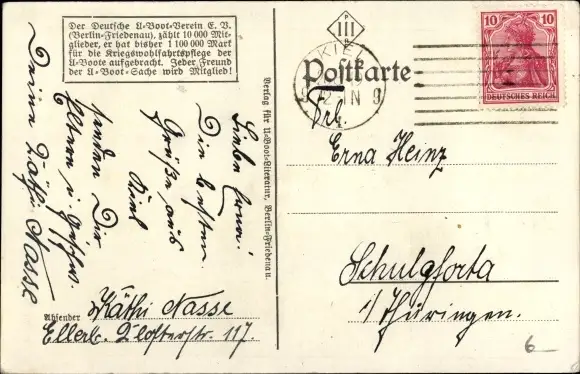 Der Deutsche U-Boot-Verein E. V.
(Berlin-Friedenau), zählt 10 000 Mit-
glieder, er hat bisher 1 100 000 Mark
für die Kriegswohlfahrtspflege der
U-Boote aufgebracht. Jeder Freund
der U-Boot-Sache wird Mitglied!
P
III
B
KIEL
2-3 N
9
10 10
DEUTSCHES REICH
Postkarte
Frl.
Erna Heinz
Schulpforta
i/Thüringen.
Verlag für U-Boot-Literatur, Berlin-Friedenau.
Liebe Erna!
Die besten
Grüße aus
Kiel
senden Dir
Eltern u. Geschw.
Deine Käthi Nasse
Absender Käthi Nasse
Ellerb. Klosterstr. 117.
6